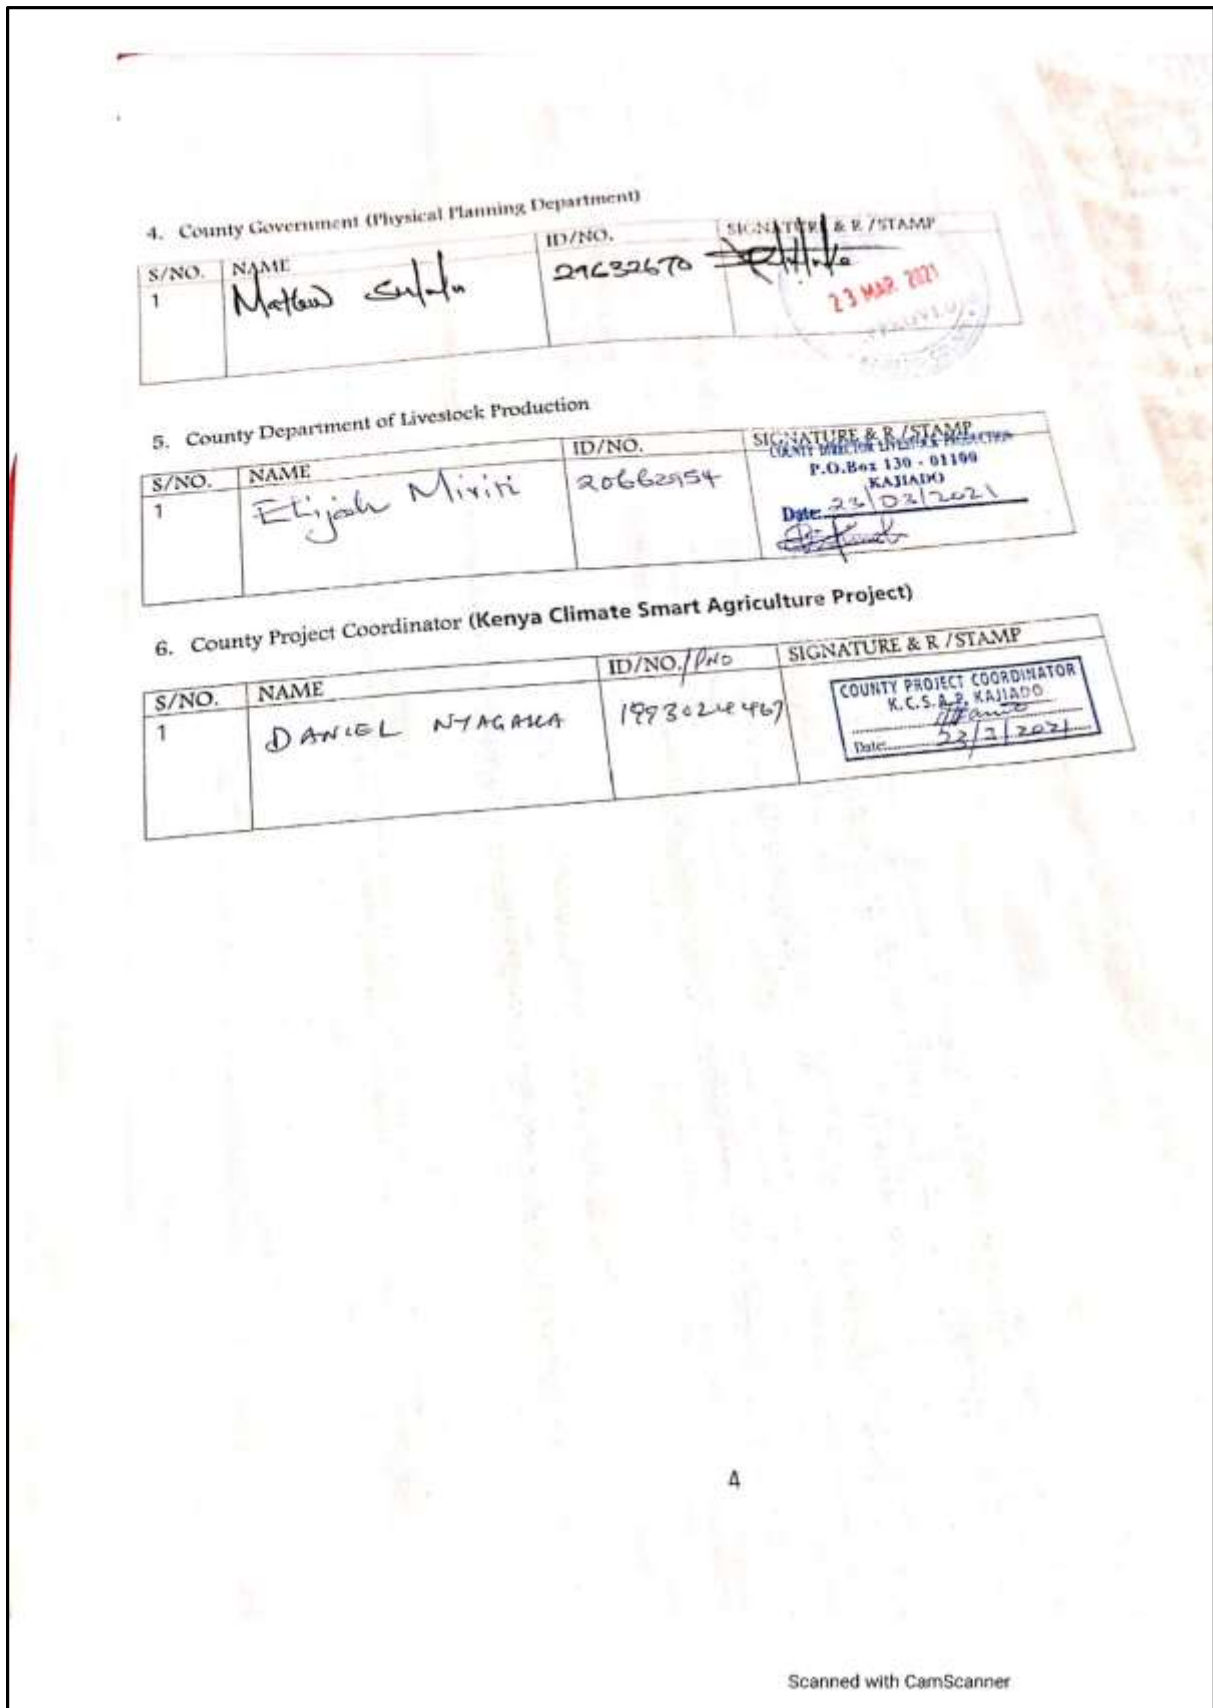 4. County Government (Physical Planning Department)
S/NO. NAME ID/NO. SIGNATURE & R /STAMP
1 Mathew 29632670
23 MAR 2021
5. County Department of Livestock Production
S/NO. NAME ID/NO. SIGNATURE & R /STAMP
COUNTY DIRECTOR LIVESTOCK PRODUCTION
1 Elijah Miriti 20662954 P.O.Box 130 - 01100
KAJIADO
Date: 23/03/2021
6. County Project Coordinator (Kenya Climate Smart Agriculture Project)
S/NO. NAME ID/NO./PNO SIGNATURE & R /STAMP
1 DANIEL NYAGAKA COUNTY PROJECT COORDINATOR
K.C.S.A.P. KAJIADO
Date: 23/3/2021
4
Scanned with CamScanner